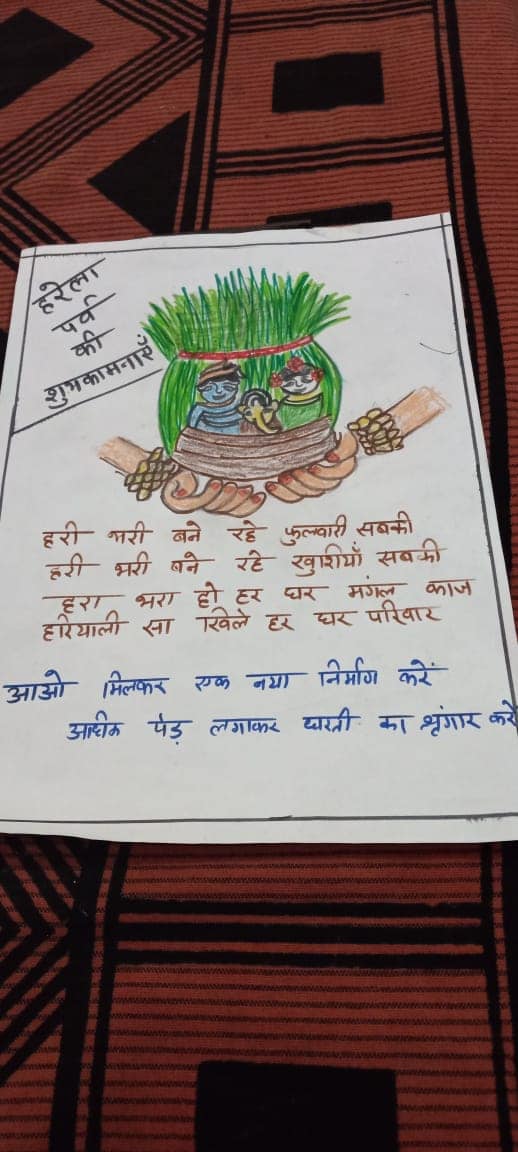 हरेला
पर्व
की
शुभकामनाएँ
हरी भरी बने रहे फुलवारी सबकी
हरी भरी बने रहे खुशियाँ सबकी
हरा भरा हो हर घर मंगल काज
हरियाली सा खिले हर घर परिवार
आओ मिलकर एक नया निर्माण करें
अधिक पेड़ लगाकर धरती का श्रृंगार करें